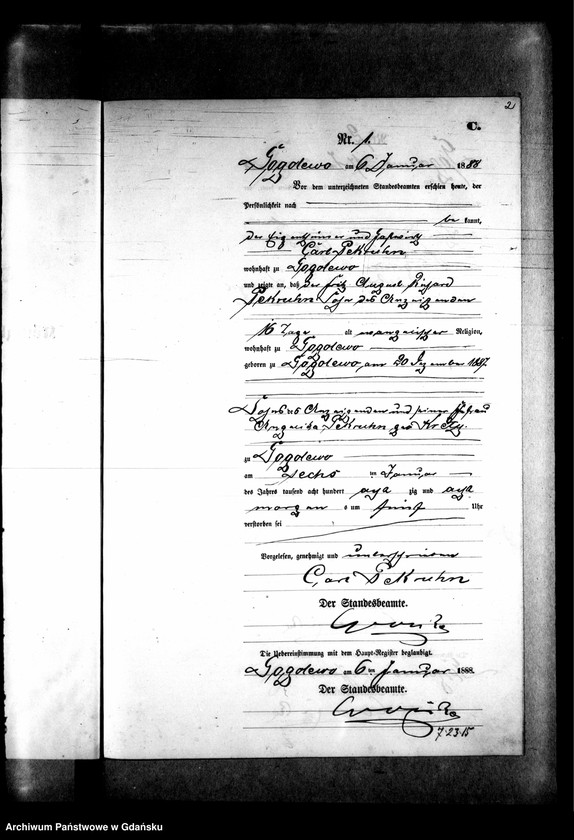 2
C.
Nr. 1.
Gogolewo am 6 Januar 1888
Vor dem unterzeichneten Standesbeamten erschien heute, der
Persönlichkeit nach
be kannt,
der Eigenthümer und Gastwirth
Carl Pekruhn
wohnhaft zu Gogolewo
und zeigte an, daß der Fritz August Richard
Pekruhn Sohn des Anzeigenden
16 Tage alt evangelischer Religion,
wohnhaft zu Gogolewo
geboren zu Gogolewo, am 20 Dezember 1887.
Sohn des Anzeigenden und seiner Ehefrau
Pekruhn geb
zu Gogolewo
am Sechs ten Januar
des Jahres tausend acht hundert acht zig und acht
morgens um fünf Uhr
verstorben sei
Vorgelesen, genehmigt und unterschrieben
Carl Pekruhn
Der Standesbeamte.
Die Uebereinstimmung mit dem Haupt-Register beglaubigt.
Gogolewo am 6 ten Januar 1888.
Der Standesbeamte.
7.23.15
Archiwum Państwowe w Gdańsku